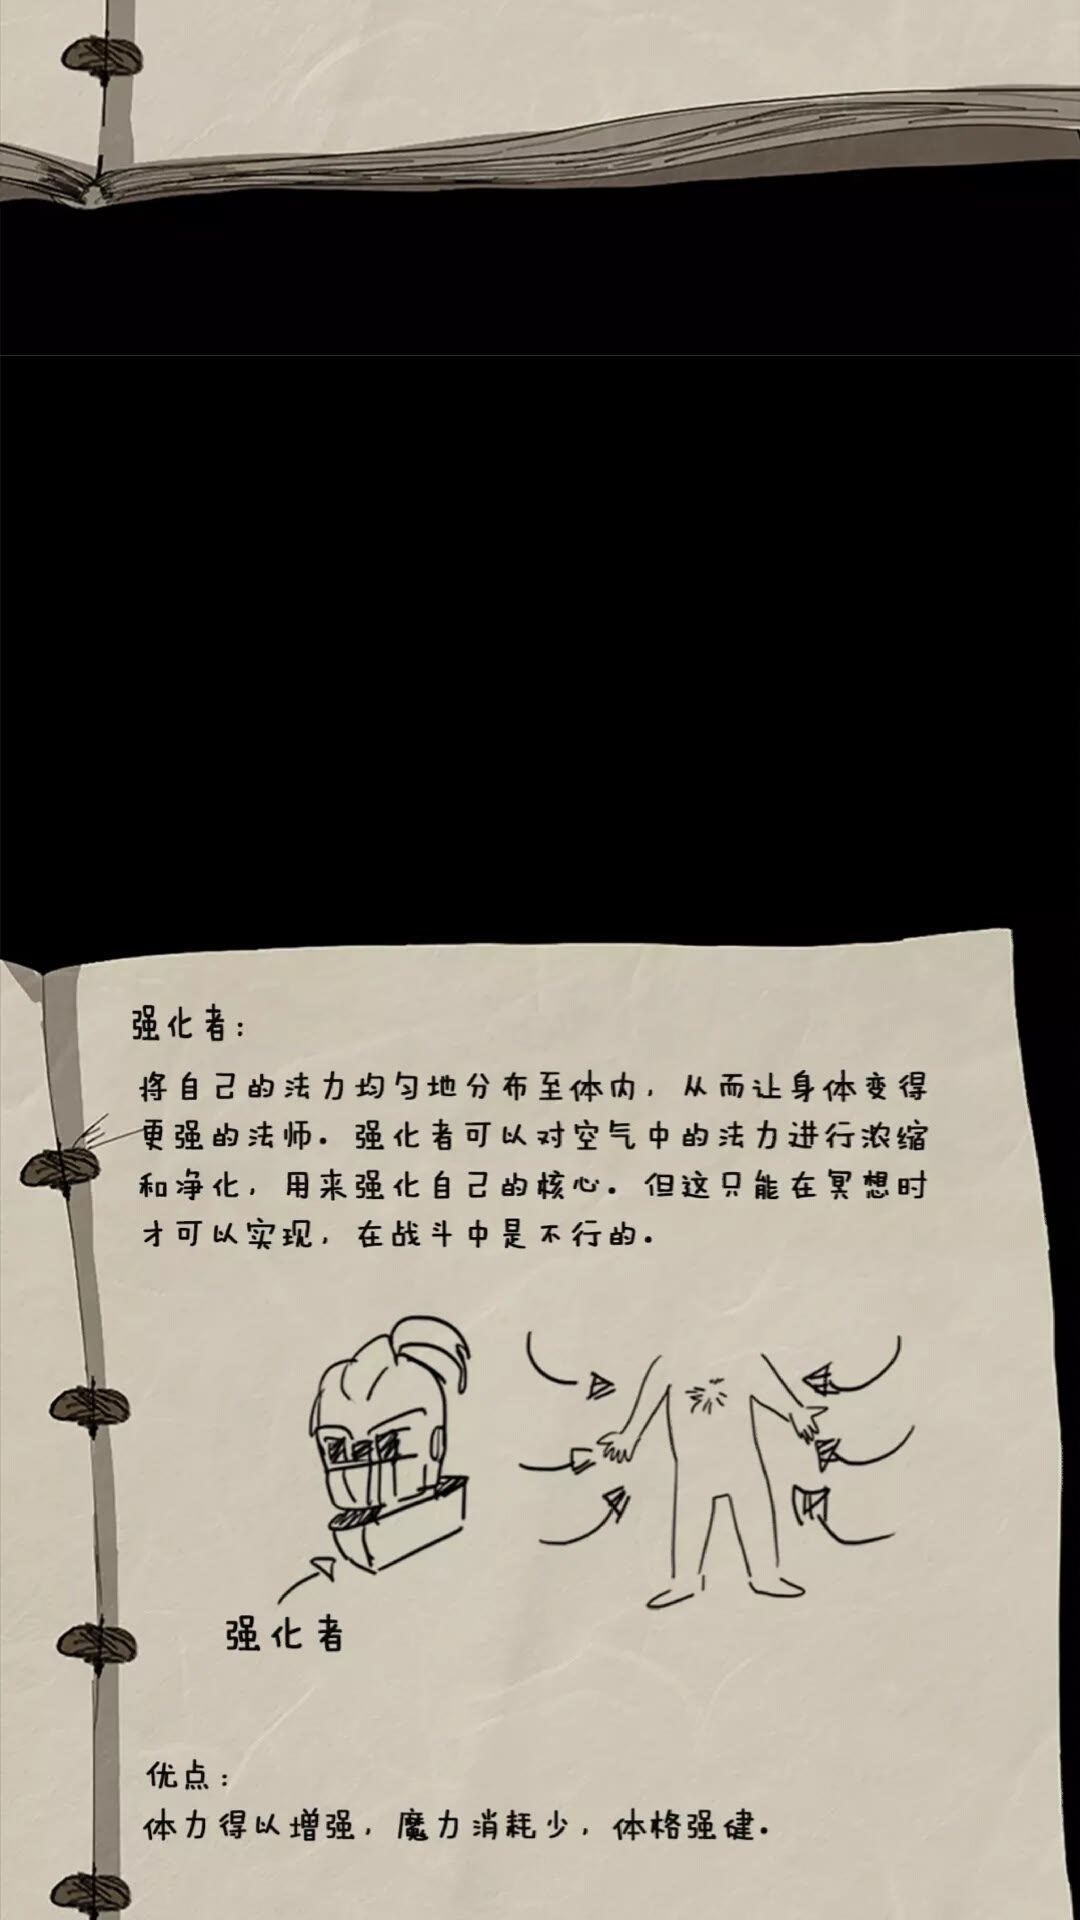 强化者：
将自己的法力均匀地分布至体内，从而让身体变得
更强的法师。强化者可以对空气中的法力进行浓缩
和净化，用来强化自己的核心。但这只能在冥想时
才可以实现，在战斗中是不行的。
强化者
优点：
体力得以增强，魔力消耗少，体格强健。